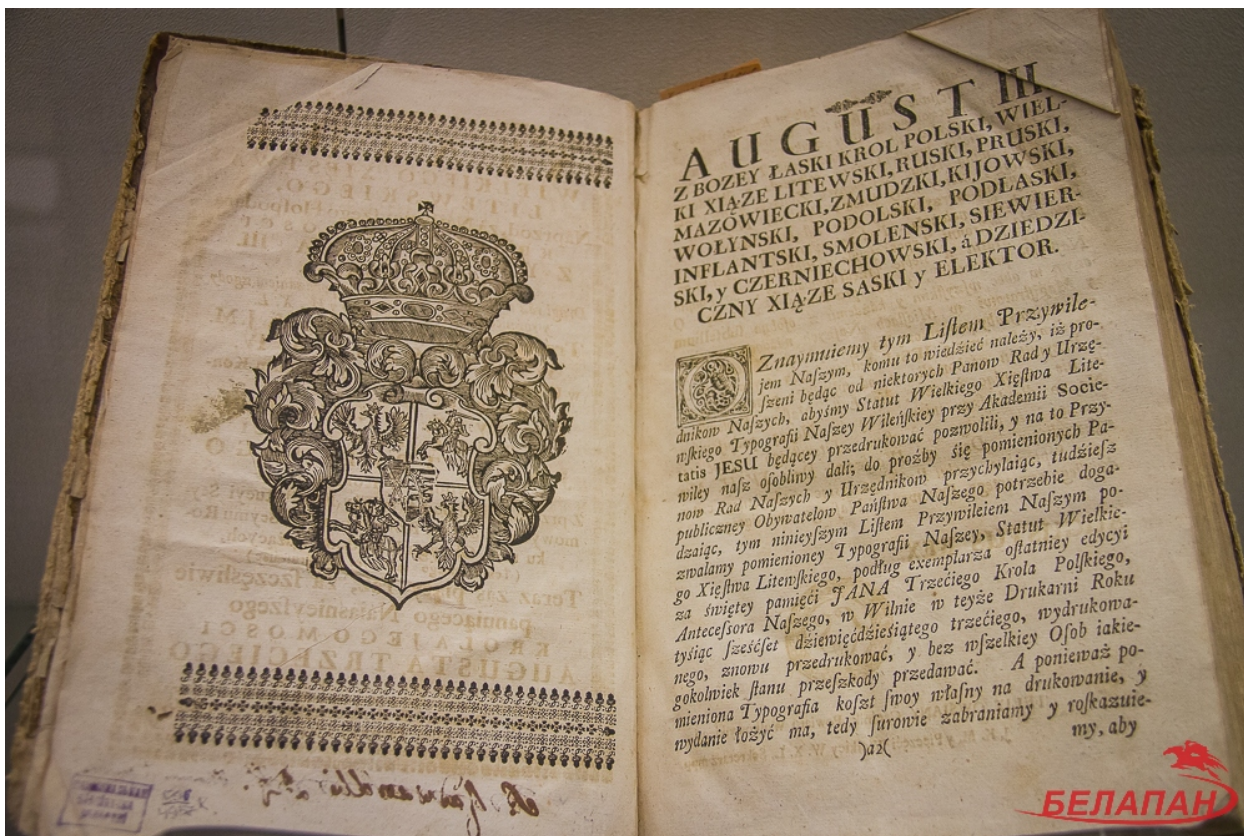 AUGUST III
Z BOZEY ŁASKI KROL POLSKI, WIEL-
KI XIĄZE LITEWSKI, RUSKI, PRUSKI,
MAZOWIECKI, ZMUDZKI, KIJOWSKI,
WOŁYNSKI, PODOLSKI, PODLASKI,
INFLANTSKI, SMOLENSKI, SIEWIER-
SKI, y CZERNIECHOWSKI, á DZIEDZI-
CZNY XIĄZE SASKI y ELEKTOR.
OZnaymuiemy tym Liſtem Przywile-
jem Naſzym, komu to wiedźieć należy, iż pro-
ſzeni będąc od niektorych Panow Rad y Urzę-
dnikow Naſzych, abyśmy Statut Wielkiego Xięſtwa Lite-
wſkiego Typografii Naſzey Wileńſkiey przy Akademii Socie-
tatis JESU będącey przedrukować pozwolili, y na to Przy-
wiley naſz oſobliwy dali; do proźby śię pomienionych Pa-
now Rad Naſzych y Urzędnikow przychylaiąc, tudźieſz
publiczney Obywatelow Pańſtwa Naſzego potrzebie doga-
dzaiąc, tym ninieyſzym Liſtem Przywileiem Naſzym po-
zwalamy pomienioney Typografii Naſzey, Statut Wielkie-
go Xięſtwa Litewſkiego, podług exemplarza oſtatniey edycyi
za świętey pamięći JANA Trzećiego Krola Polſkiego,
Anteceſſora Naſzego, w Wilnie w teyże Drukarni Roku
tyśiąc ſześćſet dźiewięćdźieśiątego trzećiego, wydrukowa-
nego, znowu przedrukować, y bez wſzelkiey Oſob iakie-
gokolwiek ſtanu przeſzkody przedawać. A ponieważ po-
mieniona Typografia koſzt ſwoy właſny na drukowanie, y
wydanie łożyć ma, tedy ſurowie zabraniamy y roſkazuie-
)a2( my, aby
БЕЛАПАН